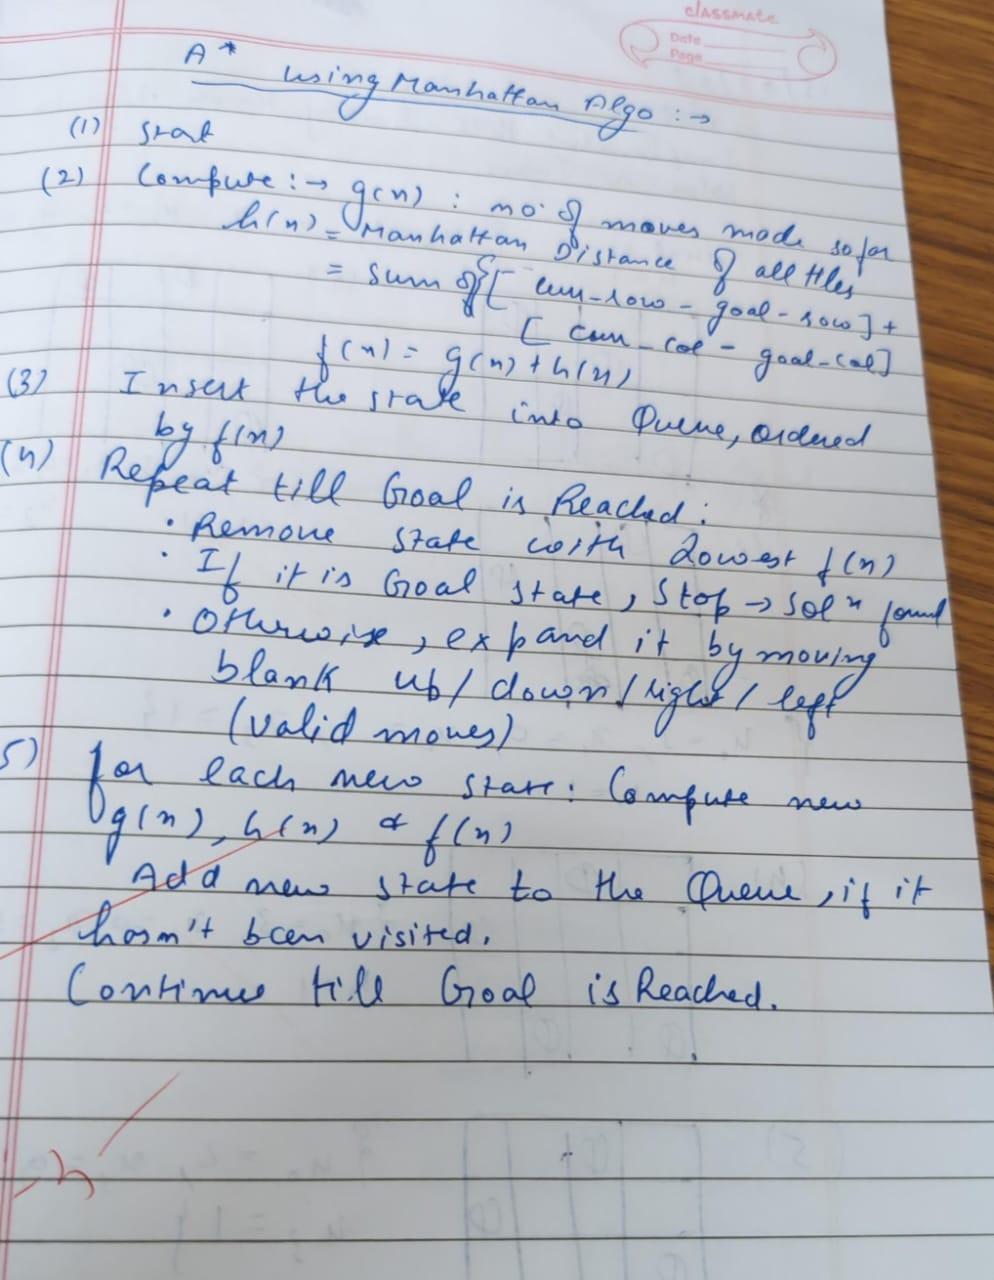 classmate
Date
Page
A* using Manhattan Algo :→
(1) Start
(2) Compute :→ g(n) : no. of moves made so far
h(n) = Manhattan Distance of all tiles
= sum of [ curr_row - goal-row] +
[ curr_col - goal-col]
f(n) = g(n) + h(n)
(3) Insert the state into Queue, ordered
by f(n)
(4) Repeat till Goal is Reached :
• Remove state with Lowest f(n)
• If it is Goal state, Stop → Solⁿ found
• Otherwise, expand it by moving
blank up/down/right/left
(valid moves)
5) for each new state: Compute new
g(n), h(n) & f(n)
Add new state to the Queue, if it
hasn't been visited.
Continue till Goal is Reached.